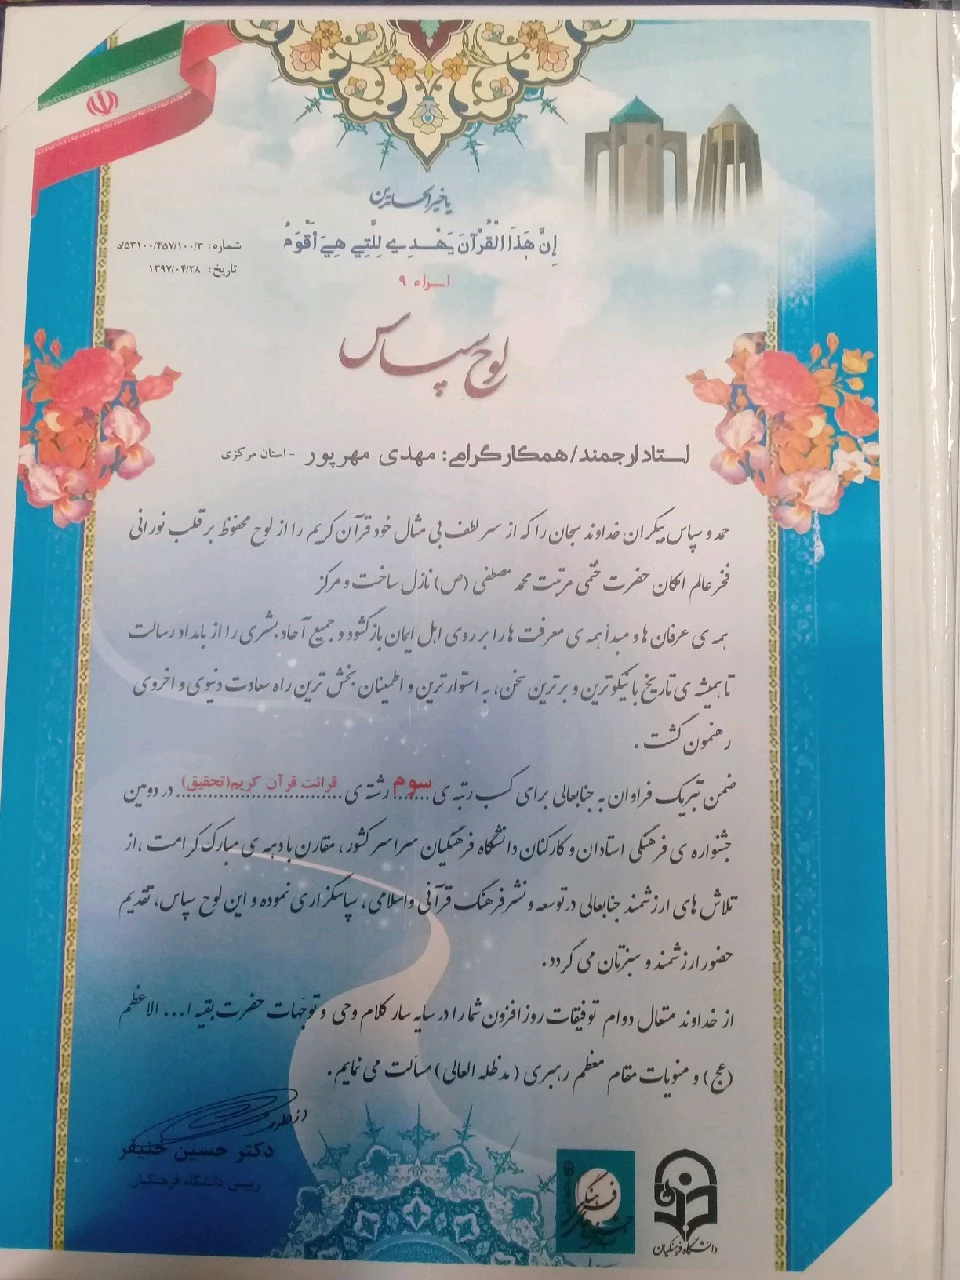 یا خیر الحامدین
إِنَّ هَٰذَا الْقُرْآنَ يَهْدِي لِلَّتِي هِيَ أَقْوَمُ
اسراء ۹
شماره: ۵۳۱۰۰/۴۵۷/۱۰۰/۳/د
تاریخ: ۱۳۹۷/۰۴/۲۸
لوح سپاس
استاد ارجمند/همکار گرامی: مهدی مهرپور - استان مرکزی
حمد و سپاس بیکران خداوند سبحان را که از سر لطف بی مثال خود قرآن کریم را از لوح محفوظ بر قلب نورانی
فخر عالم امکان حضرت ختمی مرتبت محمد مصطفی (ص) نازل ساخت و مرکز
همه ی عرفان ها و مبدأ همه ی معرفت ها را بر روی اهل ایمان باز گشود و جمیع آحاد بشری را از بامداد رسالت
تا همیشه ی تاریخ با نیکوترین و برترین سخن، به استوارترین و اطمینان بخش ترین راه سعادت دنیوی و اخروی
رهنمون گشت .
ضمن تبریک فراوان به جنابعالی برای کسب رتبه ی سوم رشته ی قرائت قرآن کریم(تحقیق) در دومین
جشنواره ی فرهنگی استادان و کارکنان دانشگاه فرهنگیان سراسر کشور، مقارن با دهه ی مبارک کرامت ، از
تلاش های ارزشمند جنابعالی در توسعه و نشر فرهنگ قرآنی و اسلامی ، سپاسگزاری نموده و این لوح سپاس، تقدیم
حضور ارزشمند و سبزتان می گردد.
از خداوند متعال دوام توفیقات روز افزون شما را در سایه سار کلام وحی و توجهات حضرت بقیه ا... الاعظم
(عج) و منویات مقام معظم رهبری (مدظله العالی) مسألت می نمایم .
دکتر حسین خنیفر
رییس دانشگاه فرهنگیان
دانشگاه فرهنگیان